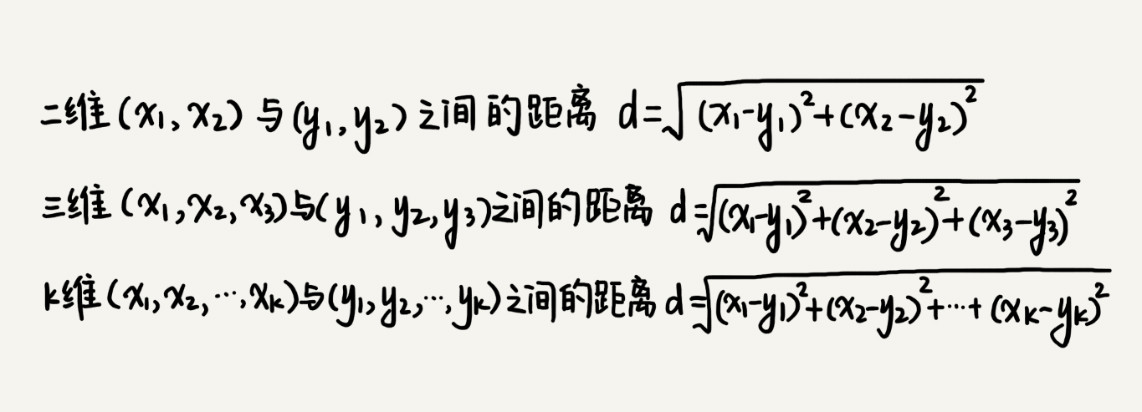 二维(x₁,x₂)与(y₁,y₂)之间的距离 d=√((x₁-y₁)²+(x₂-y₂)²)
三维(x₁,x₂,x₃)与(y₁,y₂,y₃)之间的距离 d=√((x₁-y₁)²+(x₂-y₂)²+(x₃-y₃)²)
K维(x₁,x₂,…,xₖ)与(y₁,y₂,…,yₖ)之间的距离 d=√((x₁-y₁)²+(x₂-y₂)²+…+(xₖ-yₖ)²)